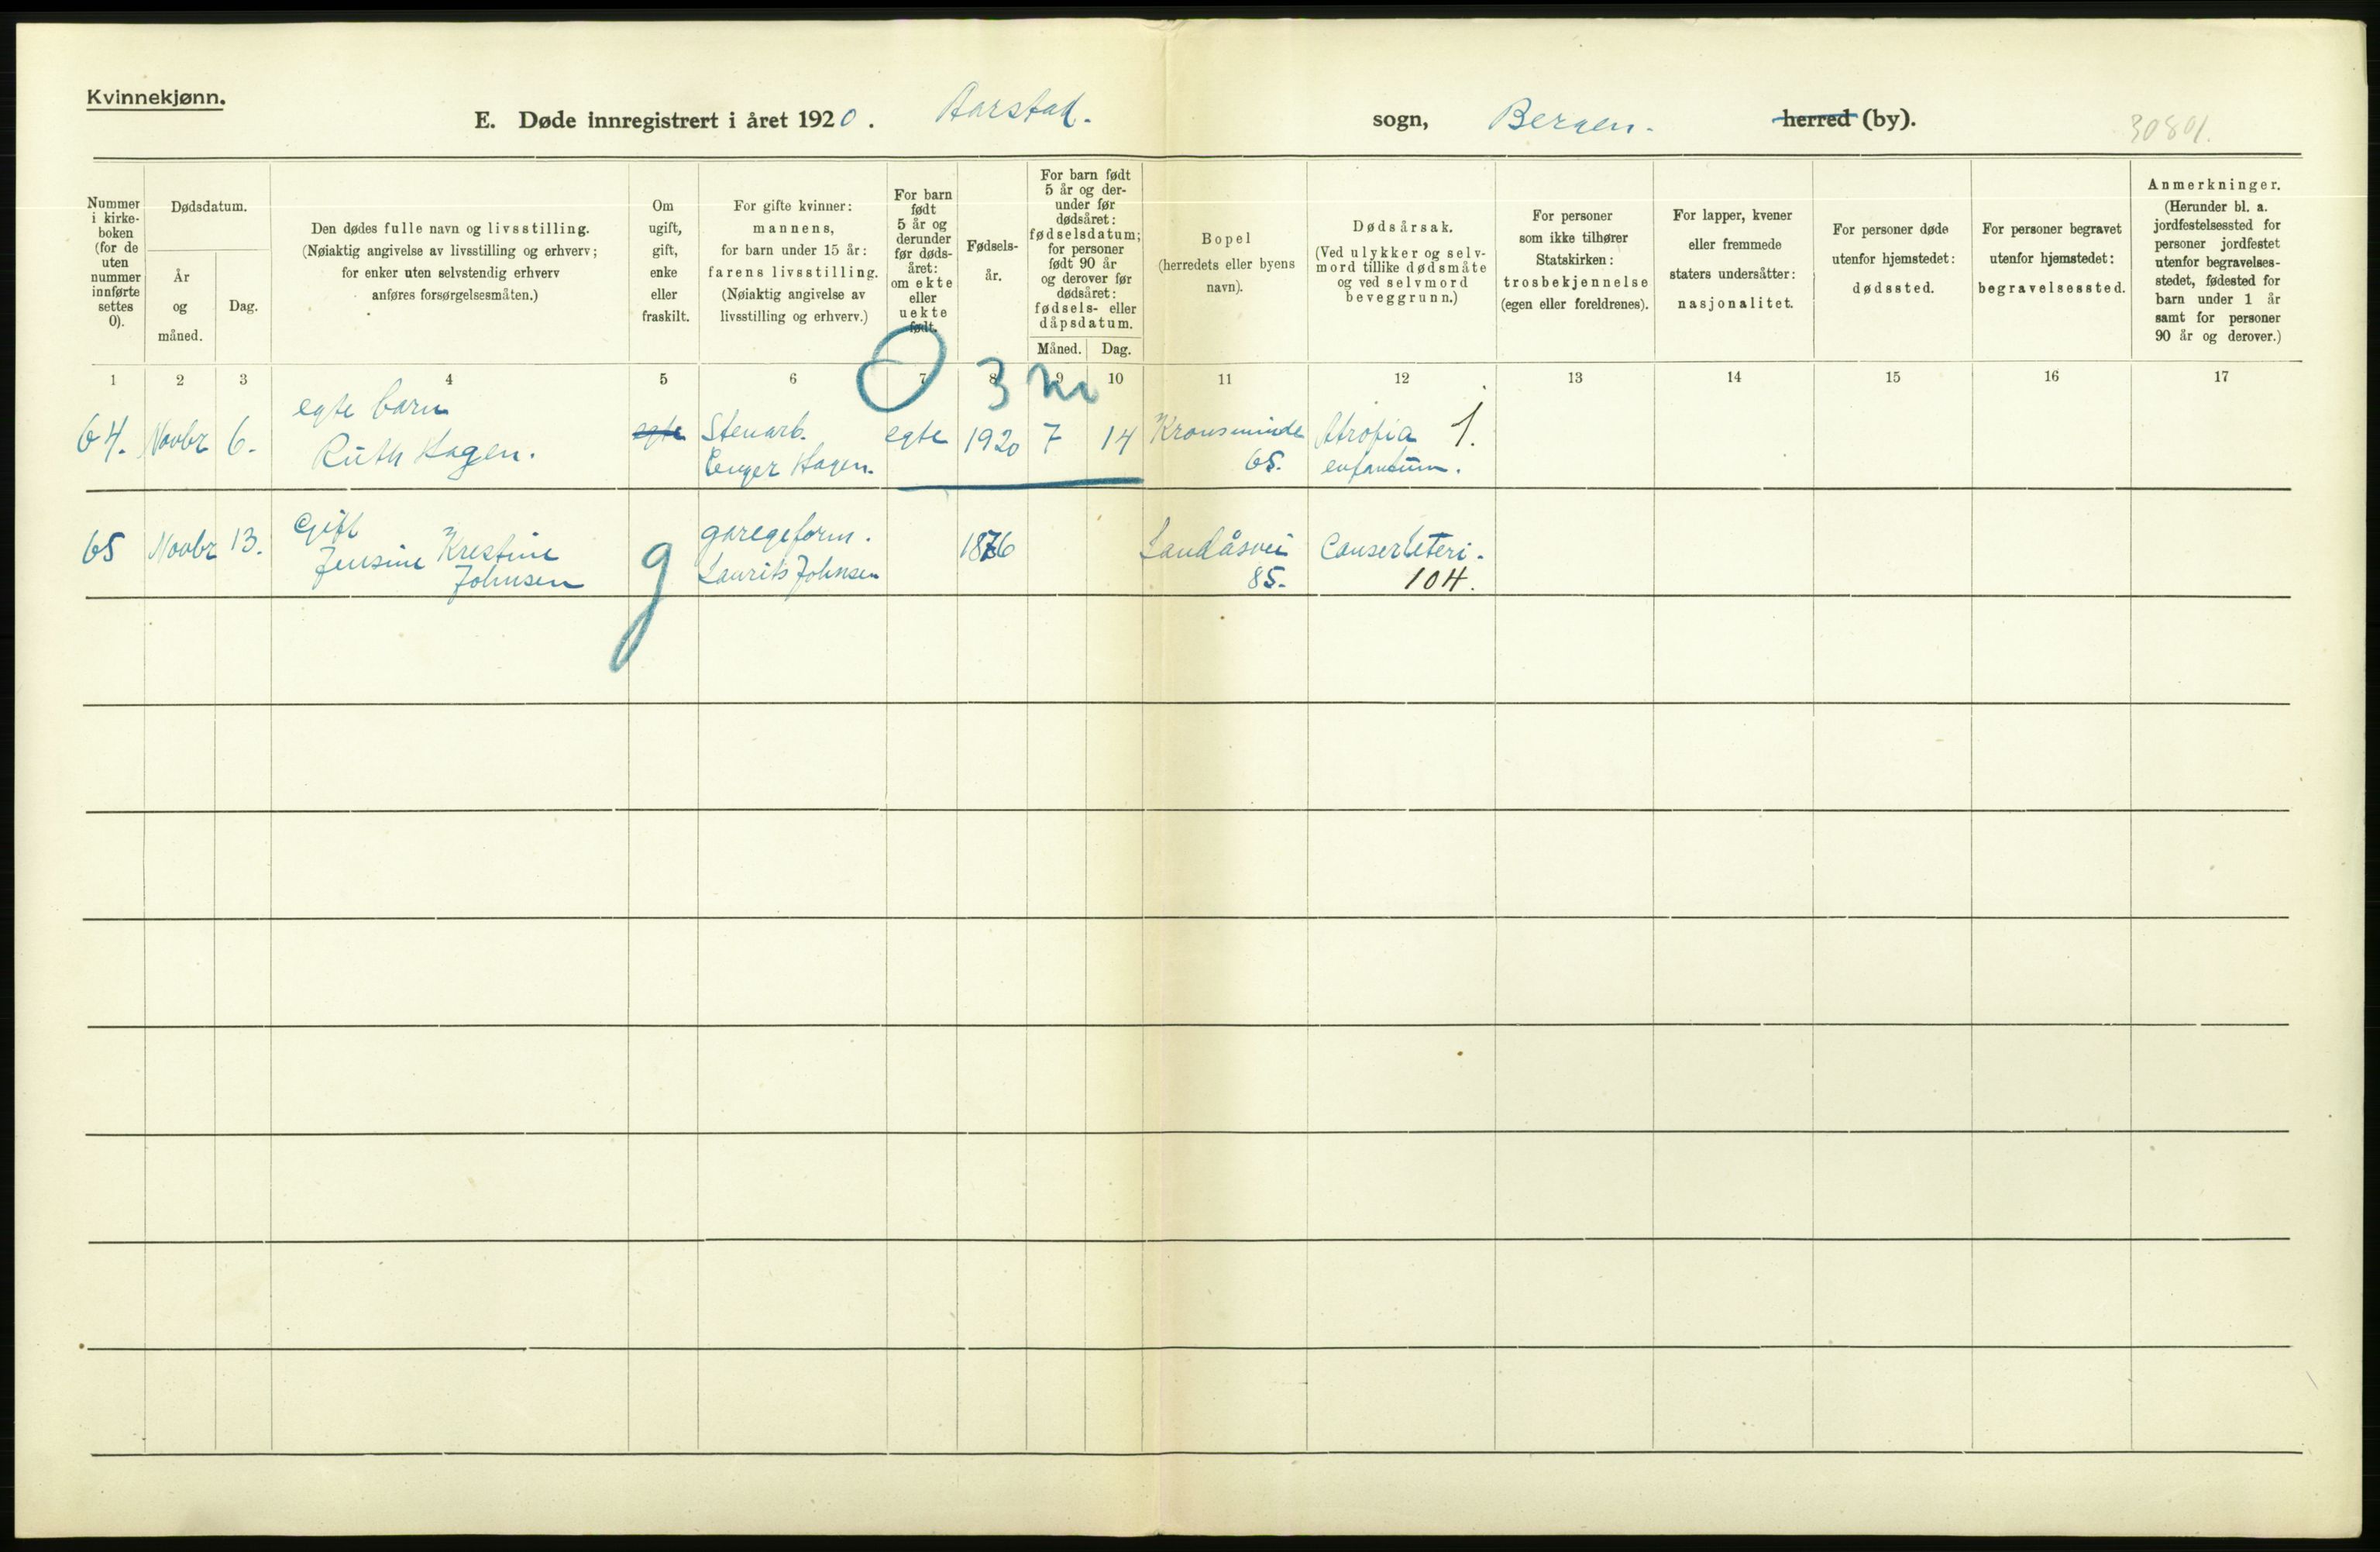 Kvinnekjønn.
E. Døde innregistrert i året 1920. Aarstad. sogn, Bergen. herred (by).
30801.
Nummer i kirke- boken (for de uten nummer innførte settes 0).
Dødsdatum.
År og måned.
Dag.
Den dødes fulle navn og livsstilling.
(Nøiaktig angivelse av livsstilling og erhverv;
for enker uten selvstendig erhverv
anføres forsørgelsesmåten.)
Om ugift, gift, enke eller fraskilt.
For gifte kvinner:
mannens,
for barn under 15 år:
farens livsstilling.
(Nøiaktig angivelse av
livsstilling og erhverv.)
For barn født 5 år og derunder før døds- året: om ekte eller uekte født.
Fødsels- år.
For barn født 5 år og der- under før dødsåret: fødselsdatum; for personer født 90 år og derover før dødsåret: fødsels- eller dåpsdatum.
Måned. Dag.
Bopel
(herredets eller byens
navn).
Dødsårsak.
(Ved ulykker og selv-
mord tillike dødsmåte
og ved selvmord
beveggrunn.)
For personer
som ikke tilhører
Statskirken:
trosbekjennelse
(egen eller foreldrenes).
For lapper, kvener
eller fremmede
staters undersåtter:
nasjonalitet.
For personer døde
utenfor hjemstedet:
dødssted.
For personer begravet
utenfor hjemstedet:
begravelsessted.
Anmerkninger.
(Herunder bl. a.
jordfestelsessted for
personer jordfestet
utenfor begravelses-
stedet, fødested for
barn under 1 år
samt for personer
90 år og derover.)
1 2 3 4 5 6 7 8 9 10 11 12 13 14 15 16 17
0 3
egte barn
64. Novbr 6. Ruth Hagen. egte Stenarb. egte 1920 7 14 Kronsminde Atrofia 1.
Hagen. 65. enfantum.
Gift
65 Novbr 13. Jensine Krestine g 1876 Landåsvei
Johnsen Laurits Johnsen 85. 104.